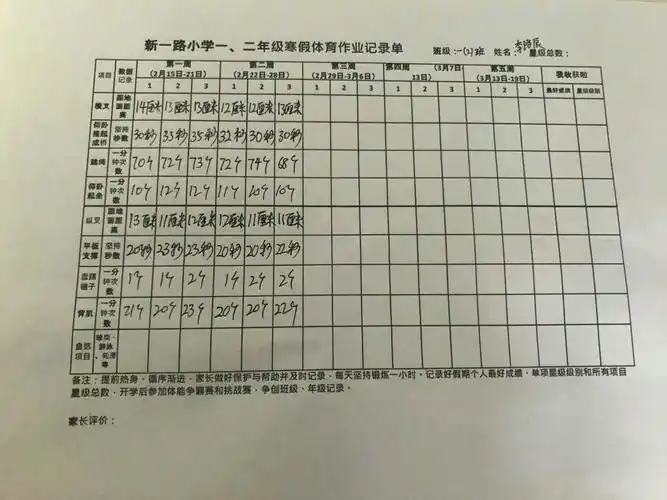 新一路小学一、二年级寒假体育作业记录单
班级:一(3)班 姓名: 星级总数:
项目 数据记录 第一周(2月15日-21日) 第二周(2月22日-28日) 第三周(2月29日-3月6日) 第四周(3月7日13日) 第五周(3月13日-19日) 我收获啦
1 2 3 1 2 3 1 2 3 1 2 3 1 2 3 最好成绩 星级级别
横叉 距地面距离 14厘米 13厘米 13厘米 12厘米 12厘米 13厘米
仰卧推起成桥 坚持秒数 30秒 33秒 35秒 32秒 30秒 30秒
跳绳 一分钟次数 70个 72个 73个 72个 74个 68个
仰卧起坐 一分钟次数 10个 12个 12个 11个 10个 10个
纵叉 距地面距离 13厘米 11厘米 12厘米 12厘米 11厘米 11厘米
平板支撑 坚持秒数 20秒 23秒 23秒 20秒 20秒 22秒
盘踢毽子 一分钟次数 1个 1个 2个 1个 2个 2个
背肌 一分钟次数 21个 20个 23个 20个 20个 22个
自选项目 球类、游泳、轮滑等
备注:提前热身,循序渐进,家长做好保护与帮助并及时记录,每天坚持锻炼一小时,记录好假期个人最好成绩,单项星级级别和所有项目
星级总数,开学后参加体能争霸赛和挑战赛,争创班级、年级记录。
家长评价: